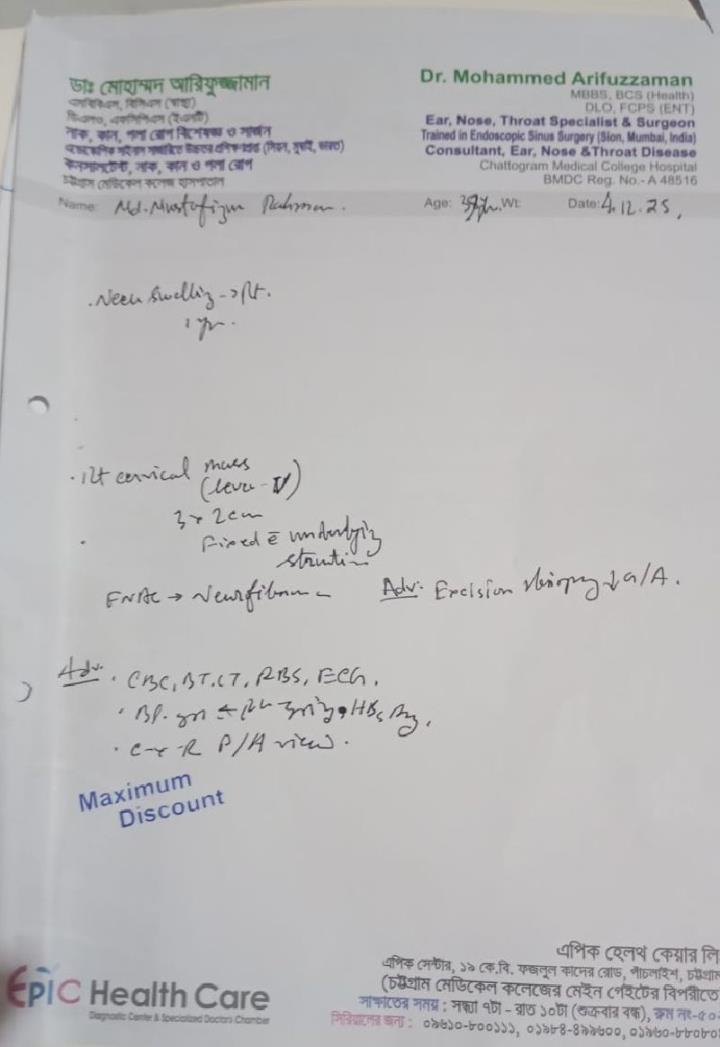 ডাঃ মোহাম্মদ আরিফুজ্জামান
এমবিবিএস, বিসিএস (স্বাস্থ্য)
ডিএলও, এফসিপিএস (ইএনটি)
নাক, কান, গলা রোগ বিশেষজ্ঞ ও সার্জন
কনসালটেন্ট, নাক, কান ও গলা রোগ
চট্টগ্রাম মেডিকেল কলেজ হাসপাতাল
Dr. Mohammed Arifuzzaman
MBBS, BCS (Health)
DLO, FCPS (ENT)
Ear, Nose, Throat Specialist & Surgeon
Trained in Endoscopic Sinus Surgery (Sion, Mumbai, India)
Consultant, Ear, Nose & Throat Disease
Chattogram Medical College Hospital
BMDC Reg. No.- A 48516
Name: Md. Mustafizur Rahman. Age: Wt: Date: 4.12.25,
. Neck swelling -> Rt.
1 yr.
. Rt cervical mass
(level - V)
3 x 2 cm
Fixed c̄ underlying
structure
FNAC → Neurofibroma
Adv: Excision biopsy ↓ G/A.
Adv. . CBC, BT, CT, RBS, ECG,
HBsAg,
. C-x-R P/A view.
Maximum
Discount
Epic Health Care
Diagnostic Center & Specialized Doctors Chamber
এপিক হেলথ কেয়ার লি
এপিক সেন্টার, ১৯ কে.বি. ফজলুল কাদের রোড, পাঁচলাইশ, চট্টগ্রাম
(চট্টগ্রাম মেডিকেল কলেজের মেইন গেইটের বিপরীতে
সাক্ষাতের সময় : সন্ধ্যা ৭টা - রাত ১০টা (শুক্রবার বন্ধ), রুম নং-৫০
সিরিয়ালের জন্য : ০৯৬১০-৮০০১১১, ০১৯৮৪-৪৯৯৬০০,